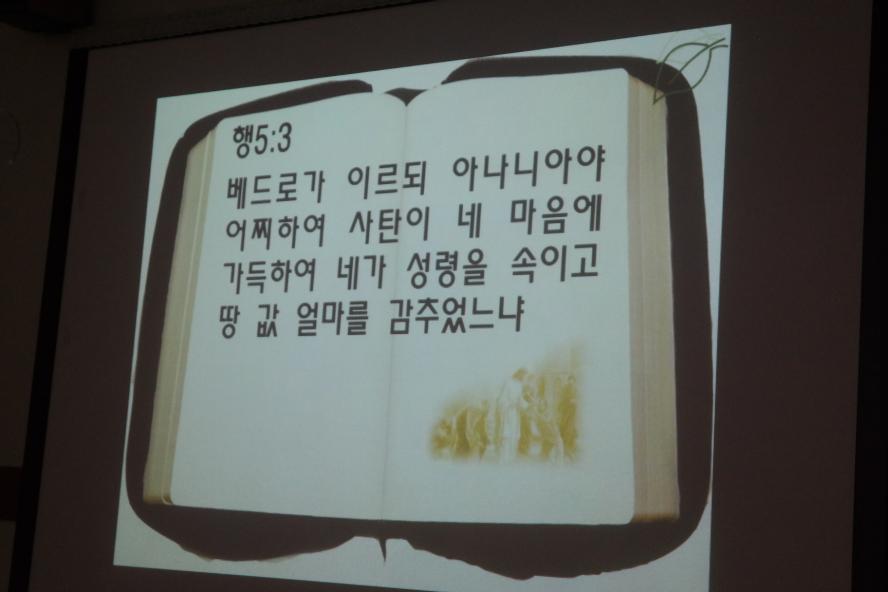 행5:3
베드로가 이르되 아나니아야
어찌하여 사탄이 네 마음에
가득하여 네가 성령을 속이고
땅 값 얼마를 감추었느냐